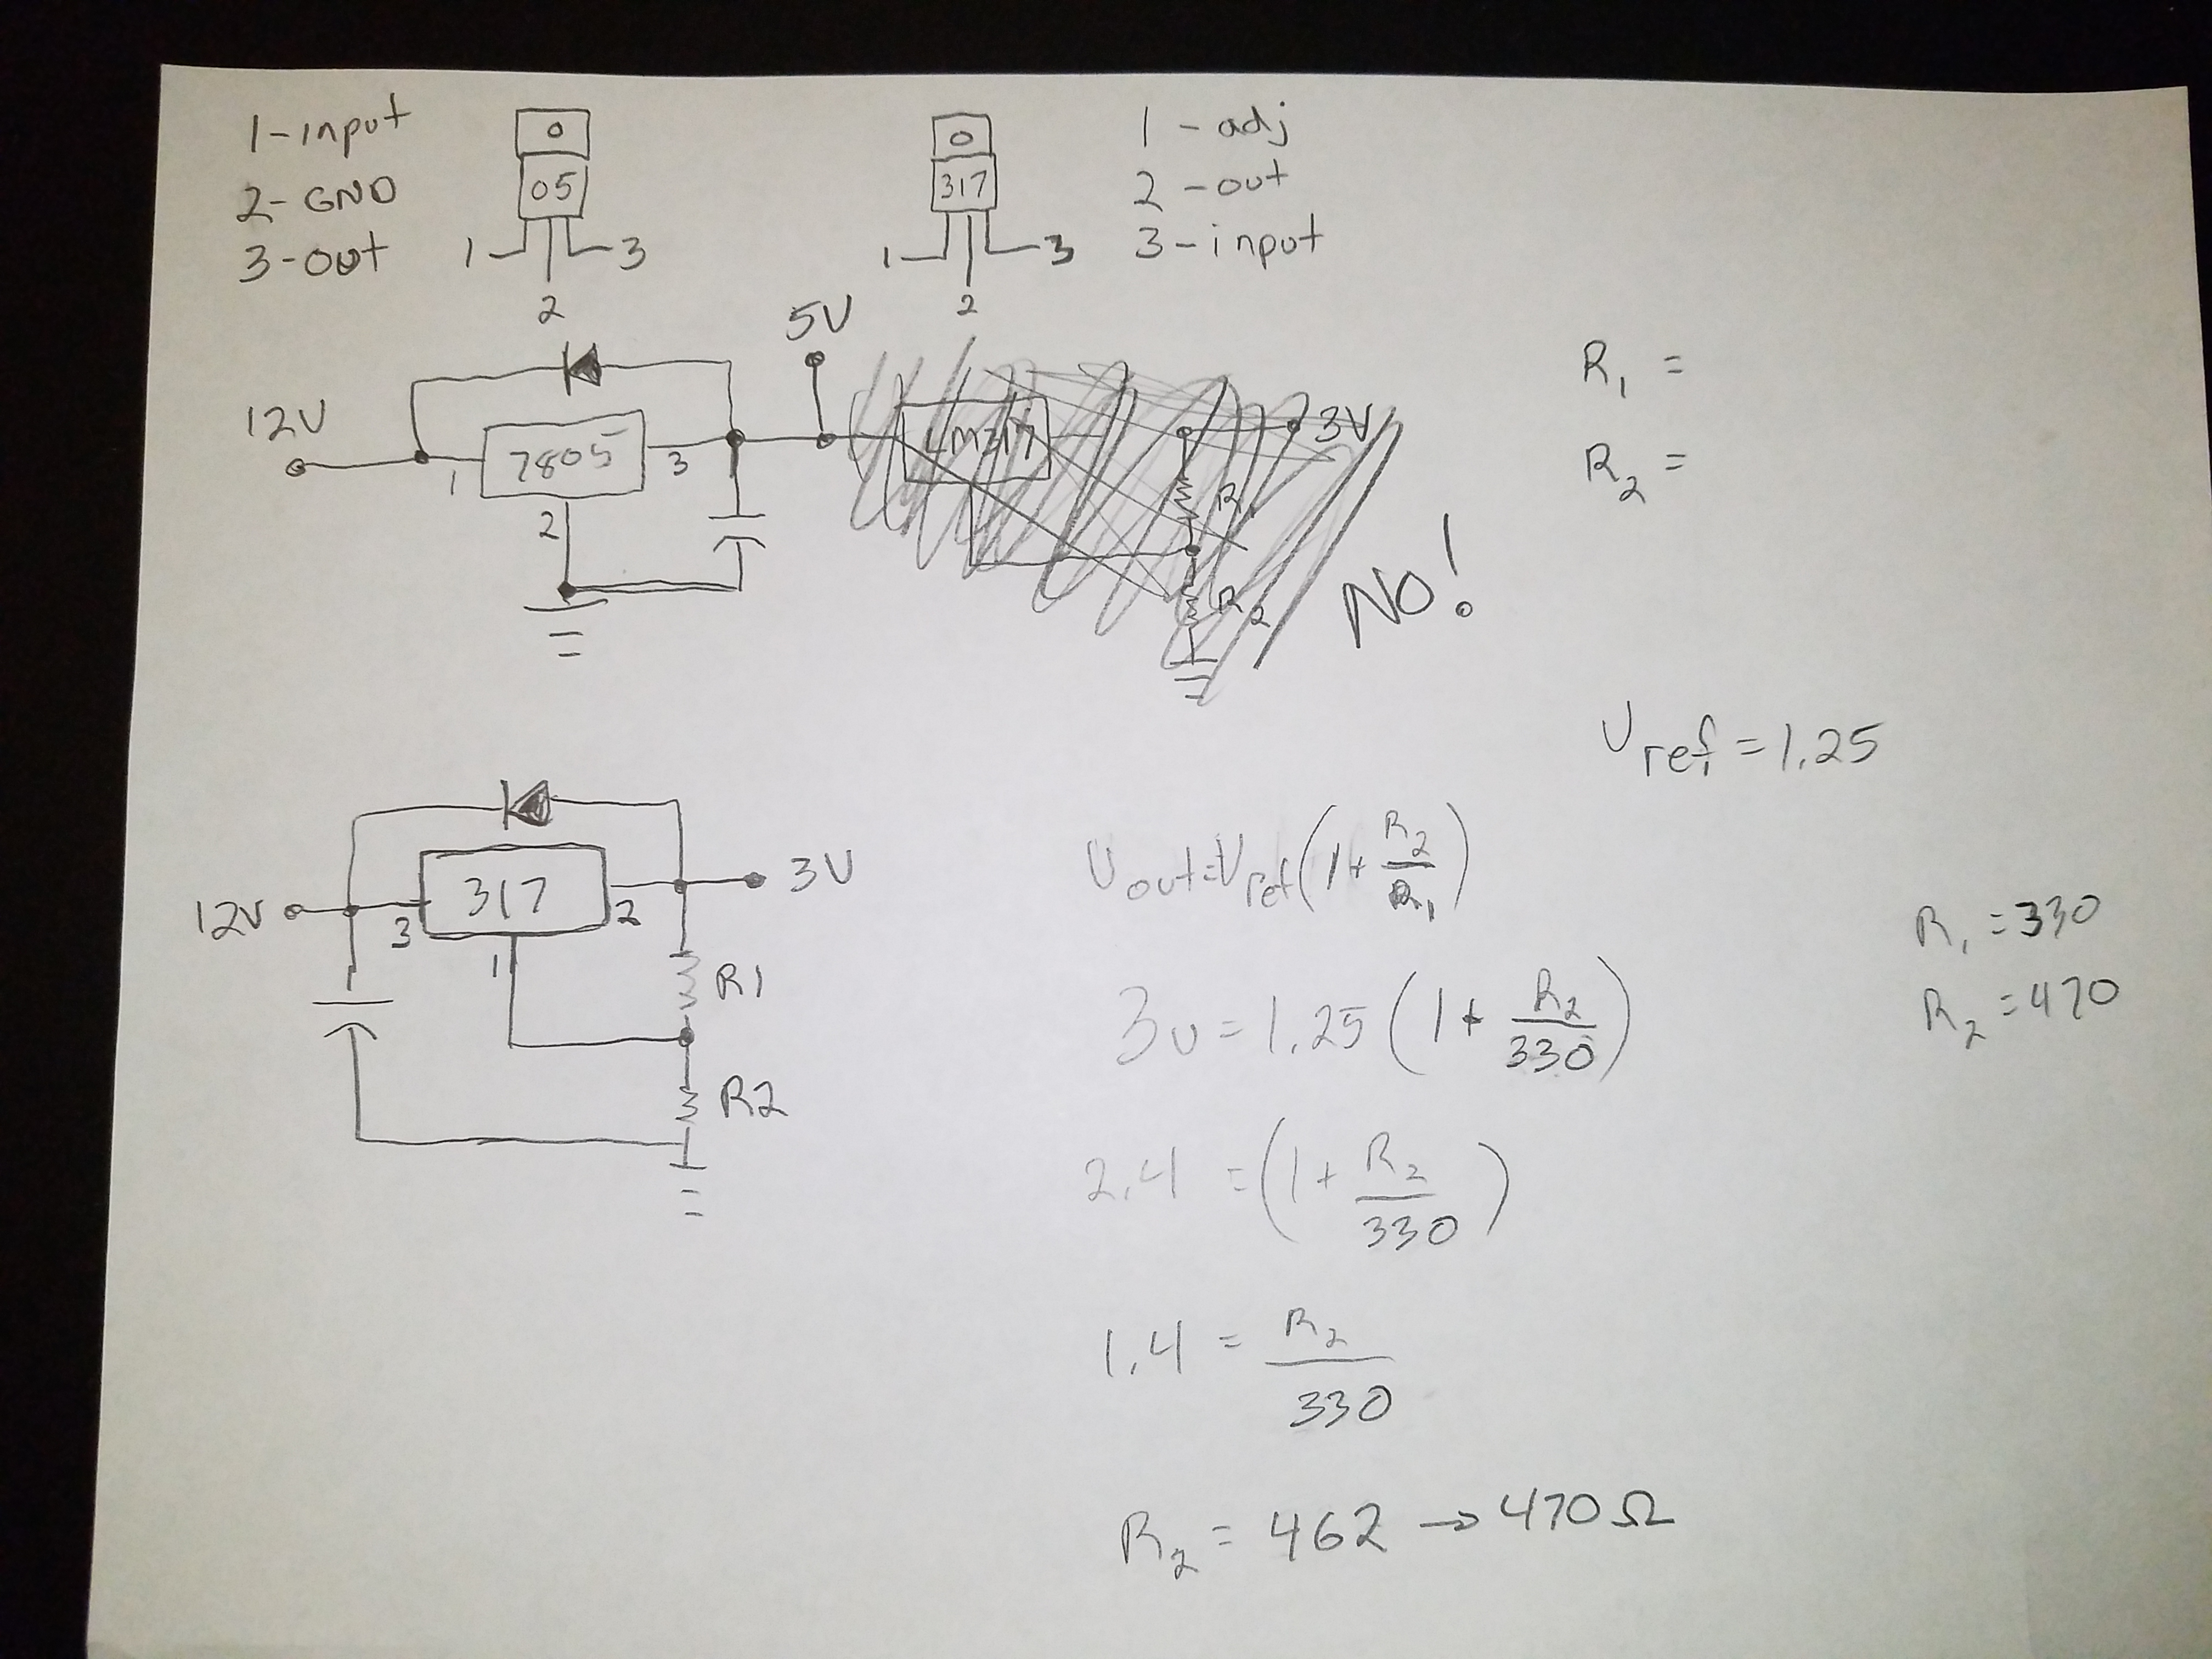 1-input
2-GND
3-out
0
05
1
3
2
0
317
1
3
2
1-adj
2-out
3-input
5V
12V
1
7805
3
2
LM317
3V
R1
R2
NO!
R₁ =
R₂ =
Vref = 1.25
12V
3
317
2
1
3V
R1
R2
Vout=Vref(1+R₂/R₁)
3v = 1.25 (1+ R₂/330)
2.4 = (1+ R₂/330)
1.4 = R₂/330
R₂ = 462 → 470Ω
R₁ = 330
R₂ = 470